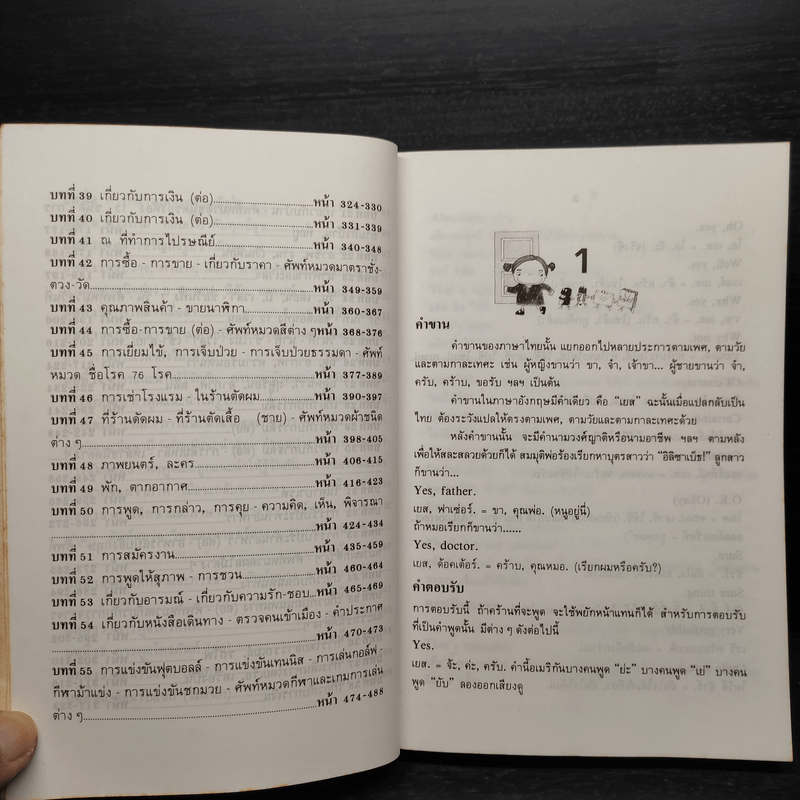 บทที่ 39 เกี่ยวกับการเงิน (ต่อ)..............................หน้า 324-330
บทที่ 40 เกี่ยวกับการเงิน (ต่อ)..............................หน้า 331-339
บทที่ 41 ณ ที่ทำการไปรษณีย์..............................หน้า 340-348
บทที่ 42 การซื้อ - การขาย - เกี่ยวกับราคา - ศัพท์หมวดมาตราชั่ง-
ตวง-วัด..............................หน้า 349-359
บทที่ 43 คุณภาพสินค้า - ขายนาฬิกา..............................หน้า 360-367
บทที่ 44 การซื้อ-การขาย (ต่อ) - ศัพท์หมวดสีต่าง ๆหน้า 368-376
บทที่ 45 การเยี่ยมไข้, การเจ็บป่วย - การเจ็บป่วยธรรมดา - ศัพท์
หมวด ชื่อโรค 76 โรค..............................หน้า 377-389
บทที่ 46 การเช่าโรงแรม - ในร้านตัดผม..............................หน้า 390-397
บทที่ 47 ที่ร้านดัดผม - ที่ร้านตัดเสื้อ (ชาย) - ศัพท์หมวดผ้าชนิด
ต่าง ๆ..............................หน้า 398-405
บทที่ 48 ภาพยนตร์, ละคร..............................หน้า 406-415
บทที่ 49 พัก, ตากอากาศ..............................หน้า 416-423
บทที่ 50 การพูด, การกล่าว, การคุย - ความคิด, เห็น, พิจารณา
..............................หน้า 424-434
บทที่ 51 การสมัครงาน..............................หน้า 435-459
บทที่ 52 การพูดให้สุภาพ - การชวน..............................หน้า 460-464
บทที่ 53 เกี่ยวกับอารมณ์ - เกี่ยวกับความรัก-ชอบ....หน้า 465-469
บทที่ 54 เกี่ยวกับหนังสือเดินทาง - ตรวจคนเข้าเมือง - คำประกาศ
..............................หน้า 470-473
บทที่ 55 การแข่งขันฟุตบอลล์ - การแข่งขันเทนนิส - การเล่นกอล์ฟ-
กีฬาม้าแข่ง - การแข่งขันชกมวย - ศัพท์หมวดกีฬาและเกมการเล่น
ต่าง ๆ..............................หน้า 474-488
1
คำขาน
คำขานของภาษาไทยนั้น แยกออกไปหลายประการตามเพศ, ตามวัย
และตามกาละเทศะ เช่น ผู้หญิงขานว่า ขา, จ๋า, เจ้าขา... ผู้ชายขานว่า จ๋า,
ครับ, คร้าบ, ขอรับ ฯลฯ เป็นต้น
คำขานในภาษาอังกฤษมีคำเดียว คือ "เยส" ฉะนั้นเมื่อแปลกลับเป็น
ไทย ต้องระวังแปลให้ตรงตามเพศ, ตามวัยและตามกาละเทศะด้วย
หลังคำขานนั้น จะมีคำนามวงศ์ญาติหรือนามอาชีพ ฯลฯ ตามหลัง
เพื่อให้สละสลวยด้วยก็ได้ สมมุติพ่อร้องเรียกหาบุตรสาวว่า "อิลิซาเบ็ธ!" ลูกสาว
ก็ขานว่า...
Yes, father.
เยส, ฟาเซ่อร์. = ขา, คุณพ่อ. (หนูอยู่นี่)
ถ้าหมอเรียกก็ขานว่า......
Yes, doctor.
เยส, ด๊อคเต้อร์. = คร้าบ, คุณหมอ. (เรียกผมหรือครับ?)
คำตอบรับ
การตอบรับนี้ ถ้าคร้านที่จะพูด จะใช้พยักหน้าแทนก็ได้ สำหรับการตอบรับ
ที่เป็นคำพูดนั้น มีต่าง ๆ ดังต่อไปนี้
Yes.
เยส. = จ้ะ, ค่ะ, ครับ. คำนี้อเมริกันบางคนพูด "ย่ะ" บางคนพูด "เย่" บางคน
พูด "ยับ" ลองออกเสียงดู